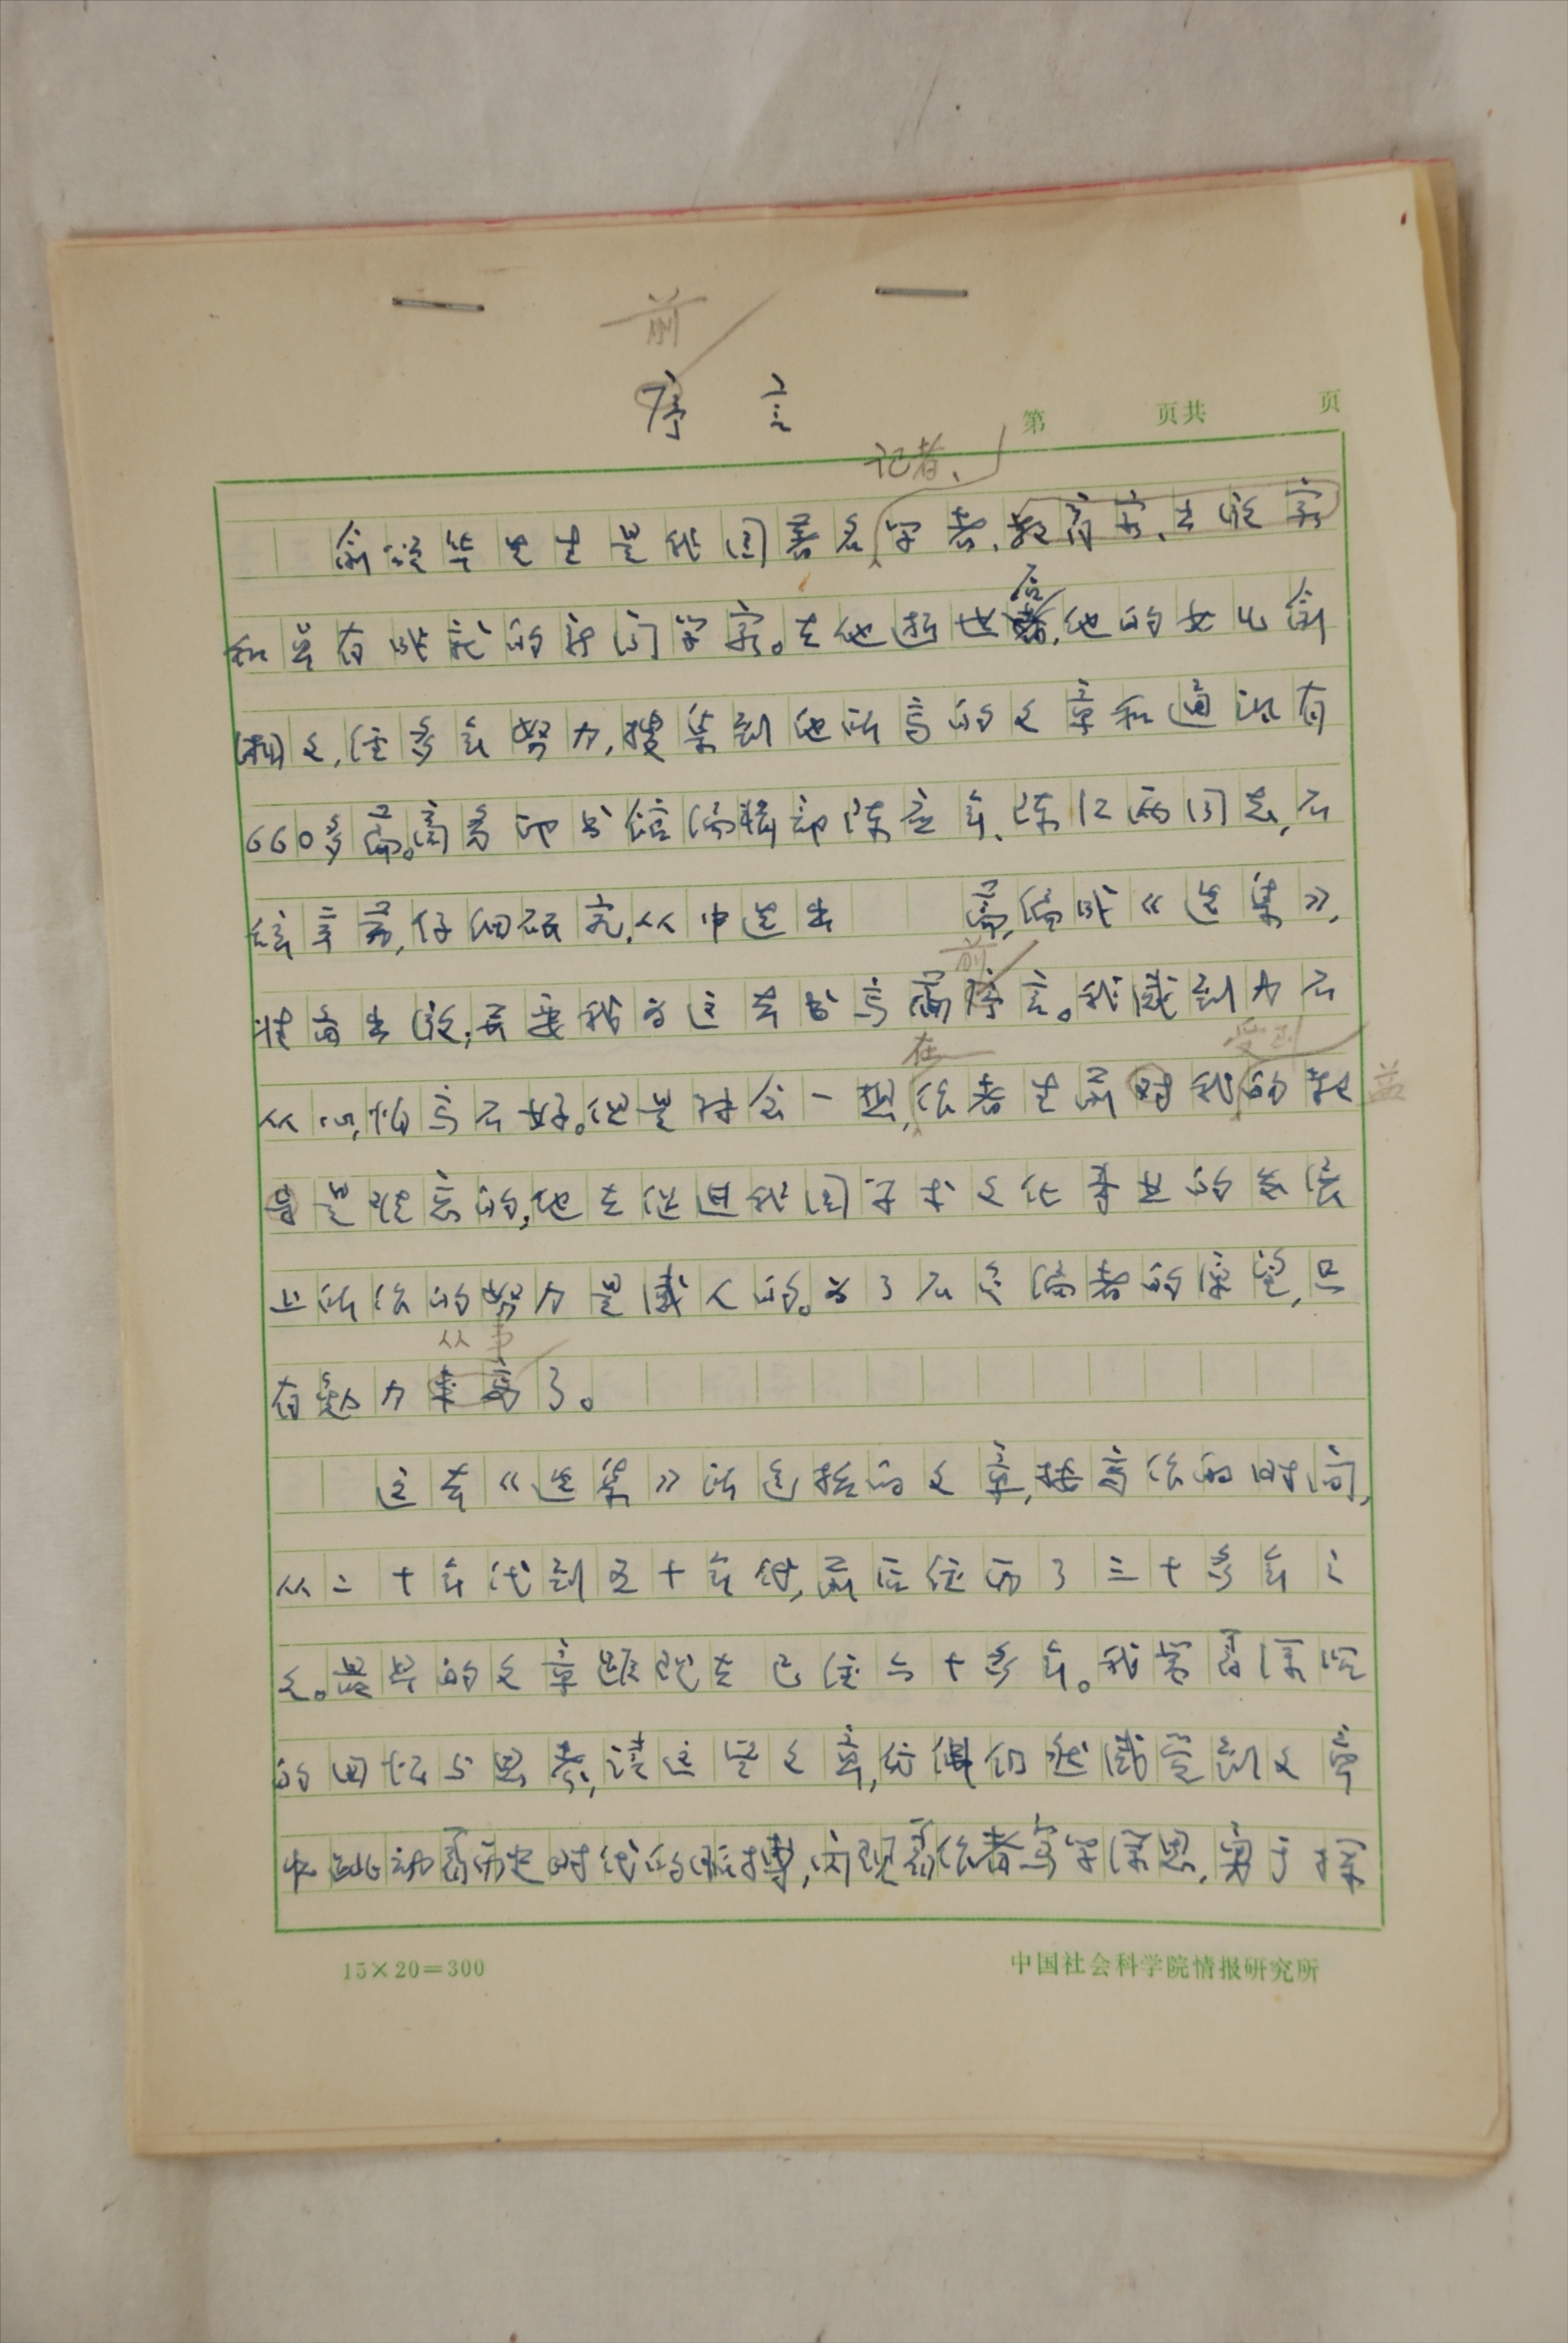 前
序言
第 页共 页
记者、
俞颂华先生是我国著名学者、教育家、出版家
后
和卓有成就的新闻学家。在他逝世后,他的女儿俞
湘文,经多年努力,搜集到他所写的文章和通讯有
660多篇。商务印书馆编辑部陈应年、陈江两同志,不
辞辛劳,仔细研究,从中选出 篇,编成《选集》,
前
准备出版,要我为这本书写篇序言。我感到力不
在 受到
从心,怕写不好。但是转念一想,作者生前对我的教 益
导是难忘的,他在促进我国学术文化事业的发展
上所作的努力是感人的。为了不负编者的厚望,只
从事
有勉力来写了。
这本《选集》所包括的文章,按写作的时间,
从二十年代到五十年代,前后经历了三十多年之
久。最早的文章距现在已经六十多年。我常着深沉
的回忆与思考,读这些文章,仿佛仍然感受到文章
中跳动着历史时代的脉搏,闪现着作者笃学深思,勇于探
15×20=300
中国社会科学院情报研究所